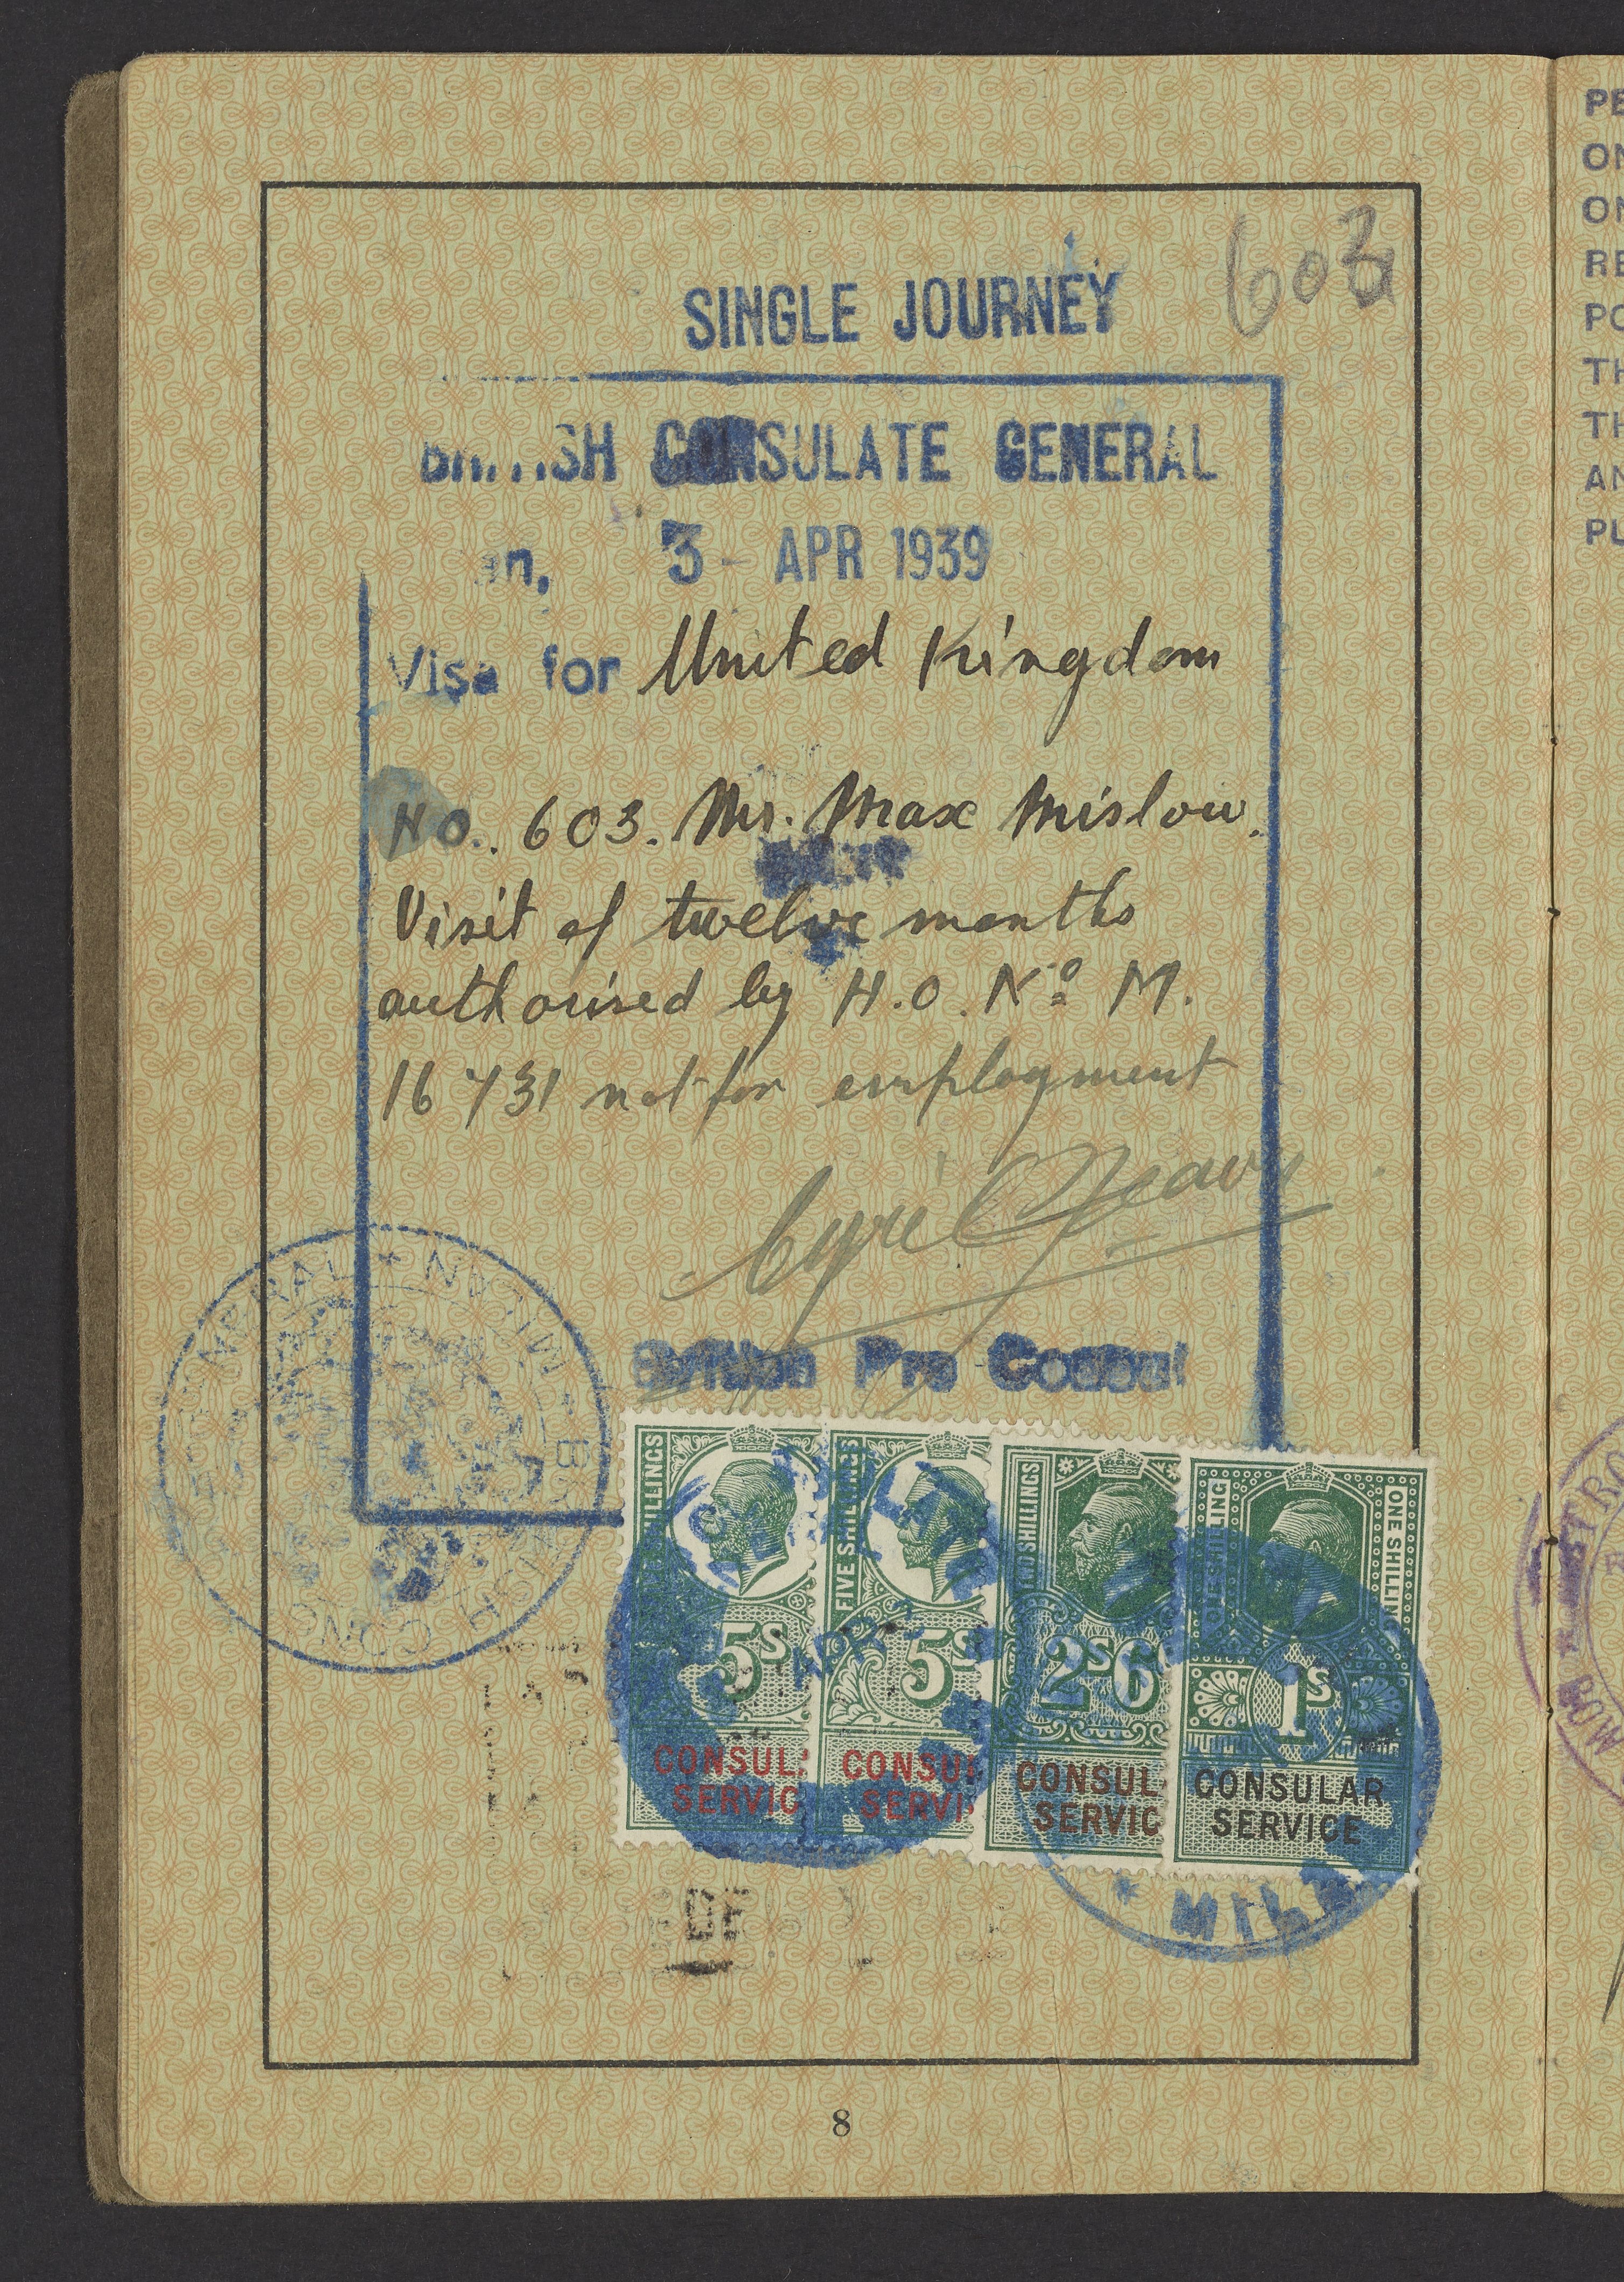 603
SINGLE JOURNEY
BRITISH CONSULATE GENERAL
3 - APR 1939
Visa for United Kingdom
No.. 603. Mr. Max Mislow.
Visit of twelve months
authorised by H.O. Nº M.
16731 not for employment
British Pro Consul
MILAN * BRITISH CONS NERAL *
SHILLINGS
5S
CONSUL
SERVIC
FIVE SHILLINGS
5S
CONSU
SERVI
TWO SHILLINGS
2S6
CONSUL
SERVIC
ONE SHILLING
ONE SHILLIN
1S
CONSULAR
SERVICE
* MIL
DE
8
PE
ON
ON
RE
PO
TH
TH
AN
PL
ST RO